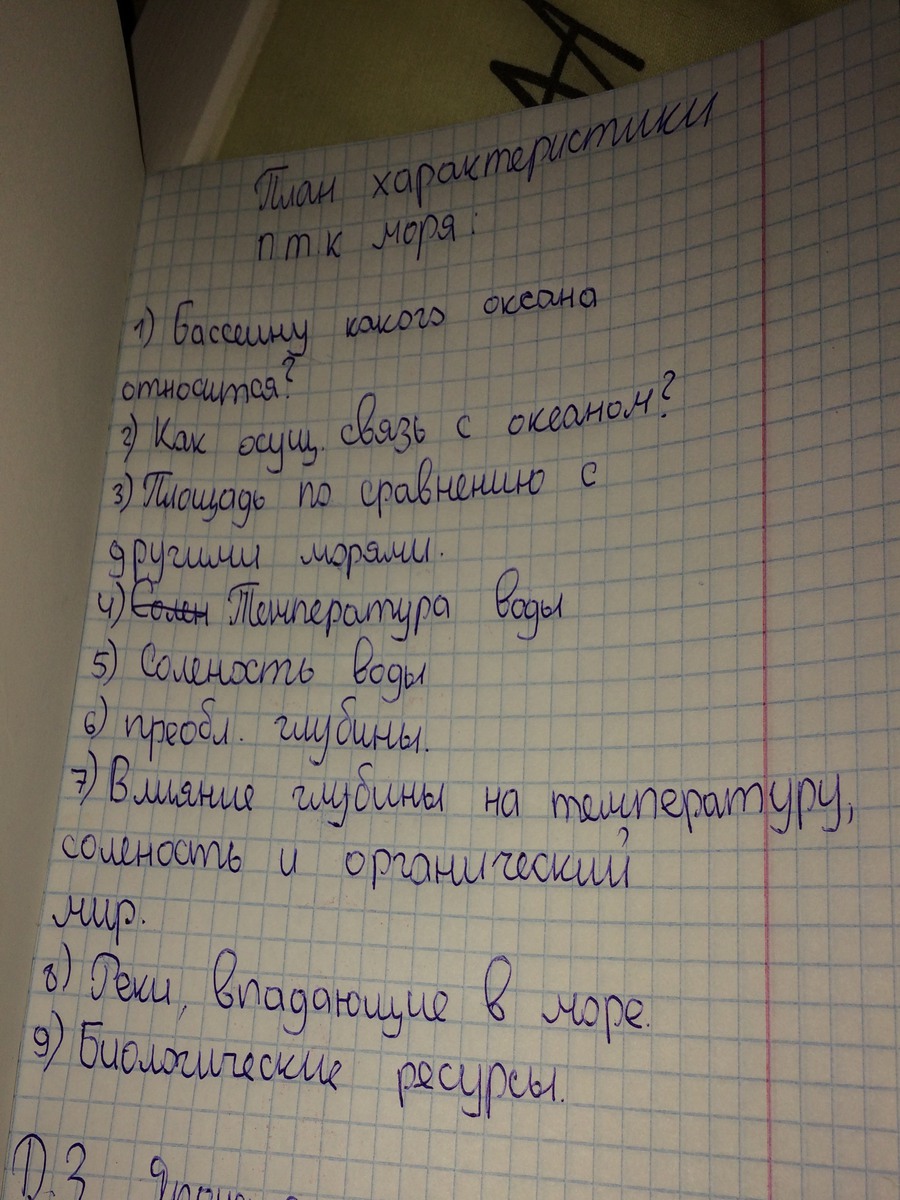 План характеристики
п т к моря:
1) Бассеину какого океана
относится?
2) Как осущ. связь с океаном?
3) Площадь по сравнению с
другими морями.
4) Солен Температура воды
5) Соленость воды
6) преобл. глубины.
7) Влияние глубины на температуру,
соленость и органический
мир.
8) Реки, впадающие в море.
9) Биологические ресурсы.
Д.З